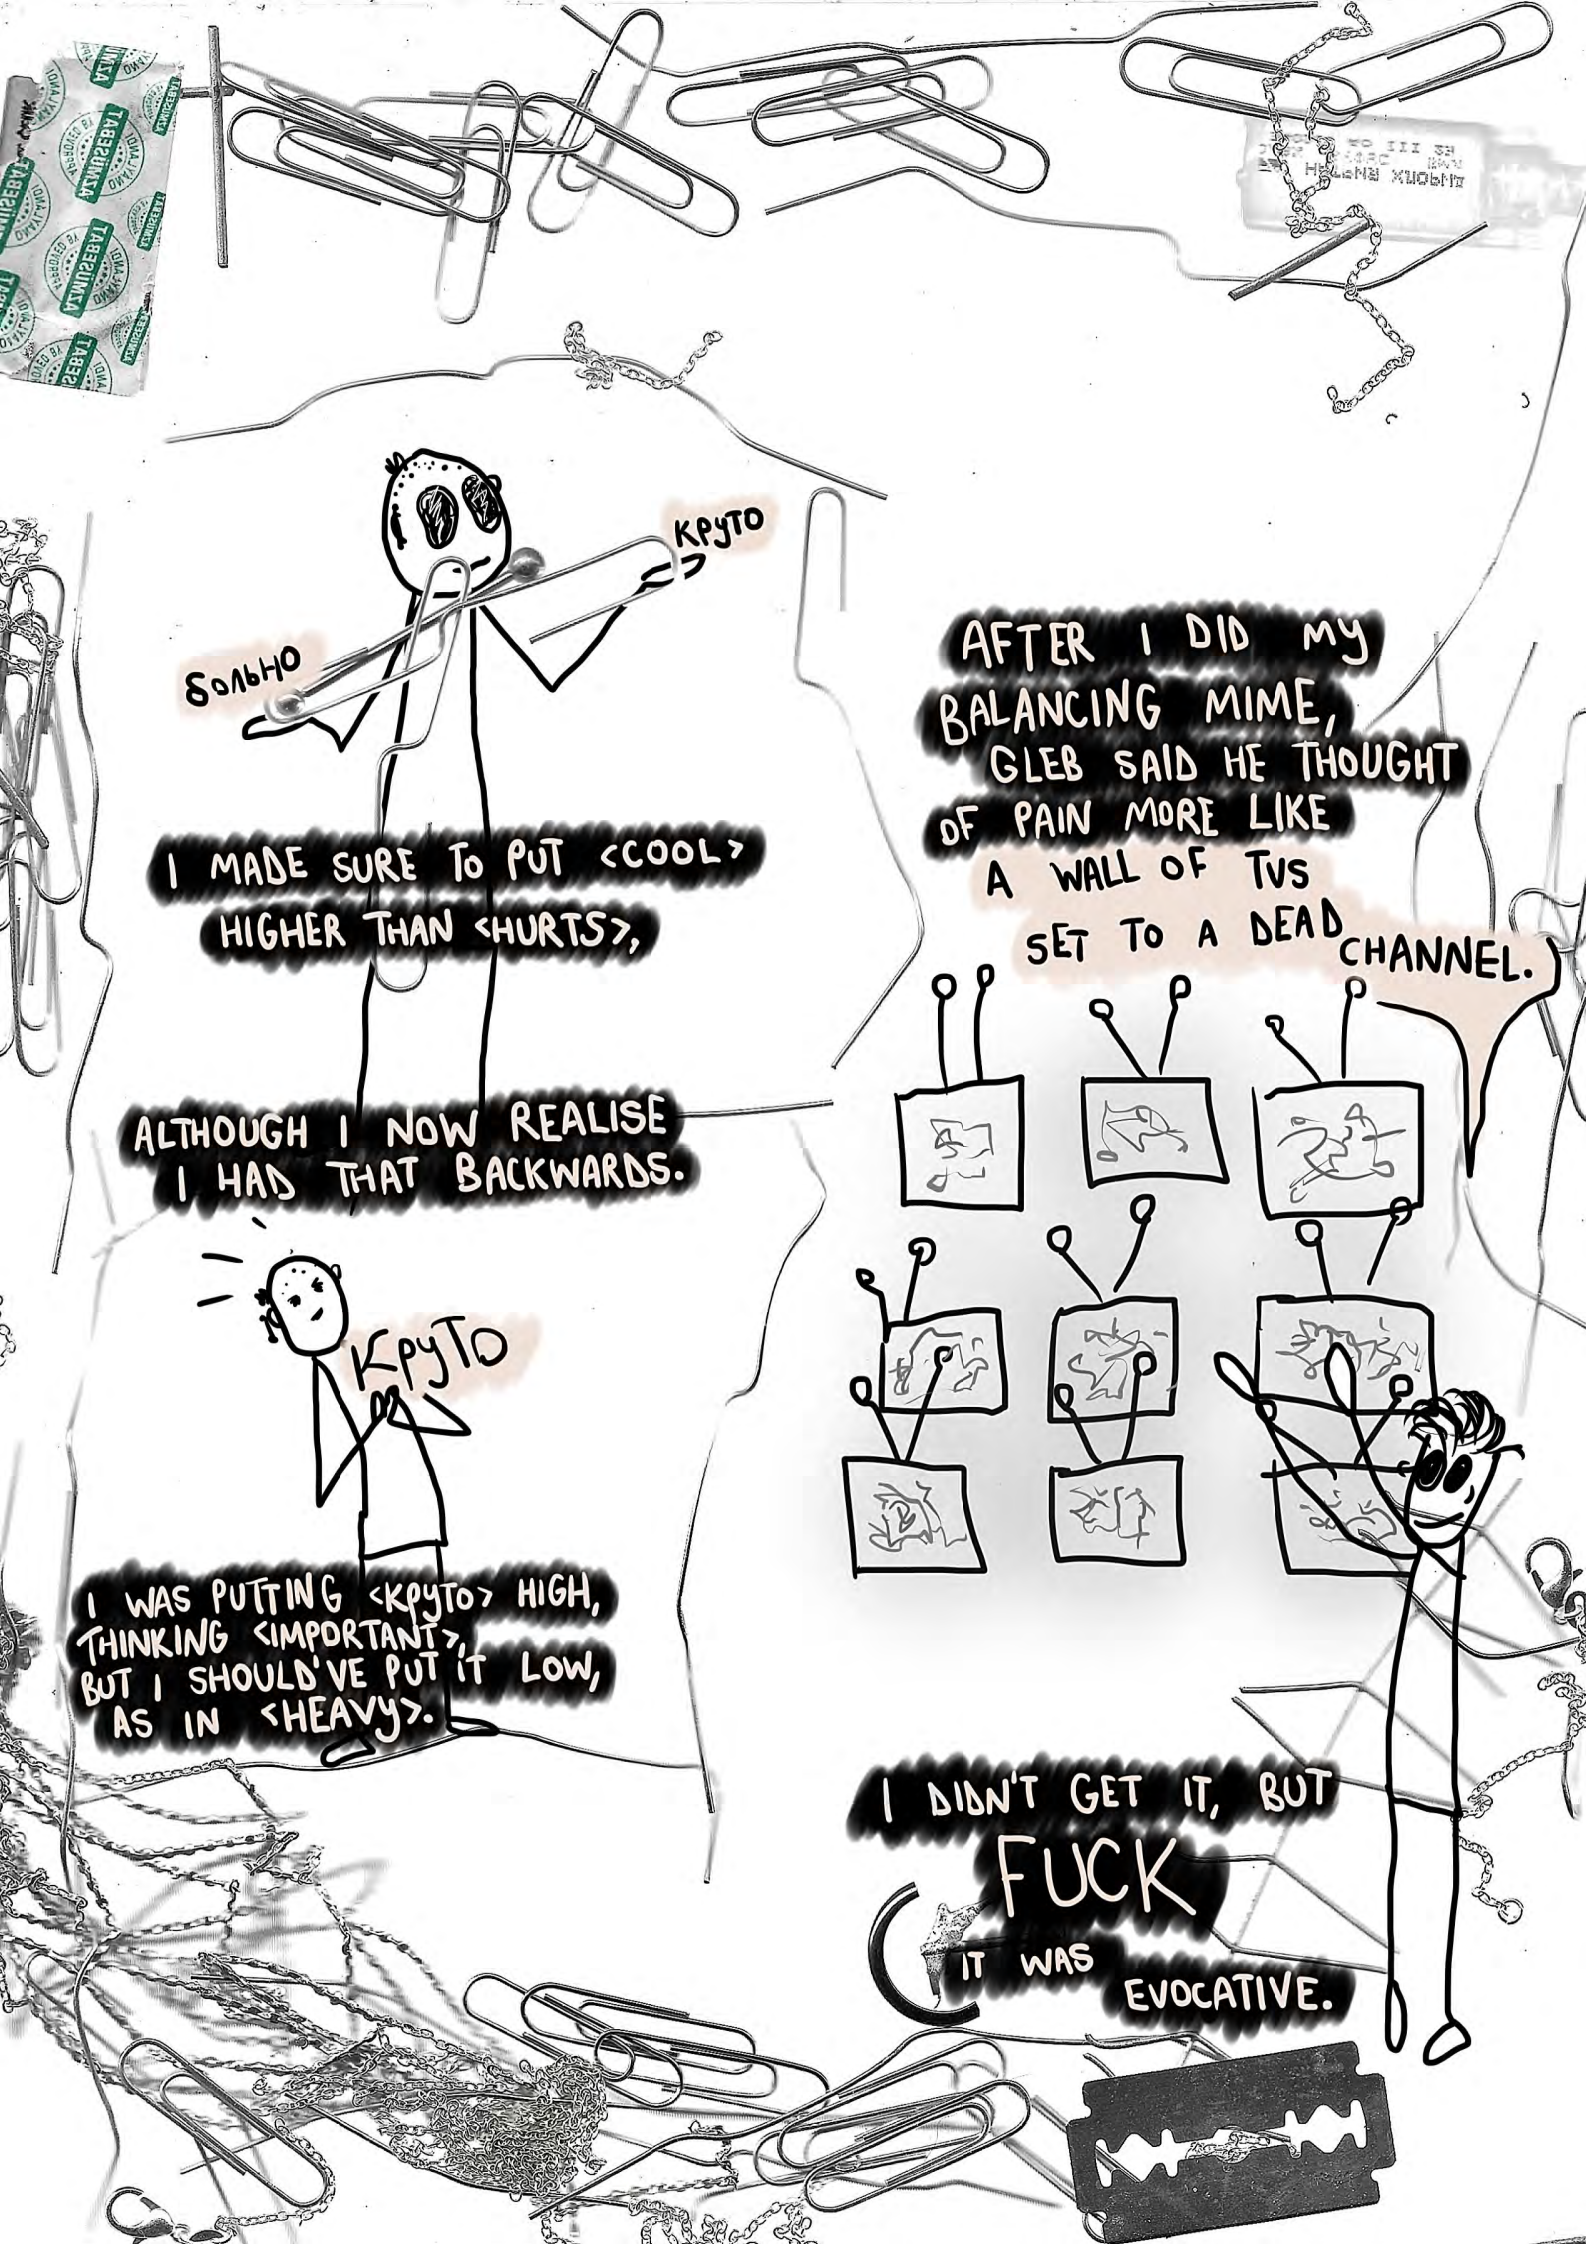 больно
круто
I MADE SURE TO PUT <COOL>
HIGHER THAN <HURTS>,
ALTHOUGH I NOW REALISE
I HAD THAT BACKWARDS.
КруТО
I WAS PUTTING <КруТО> HIGH,
THINKING <IMPORTANT>,
BUT I SHOULD'VE PUT IT LOW,
AS IN <HEAVY>.
AFTER I DID MY
BALANCING MIME,
GLEB SAID HE THOUGHT
OF PAIN MORE LIKE
A WALL OF TVS
SET TO A DEAD
CHANNEL.
I DIDN'T GET IT, BUT
FUCK
IT WAS
EVOCATIVE.